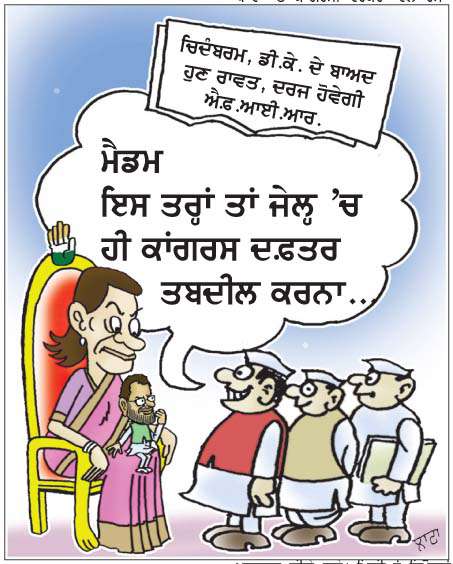 ਚਿਦੰਬਰਮ, ਡੀ.ਕੇ. ਦੇ ਬਾਅਦ
ਹੁਣ ਰਾਵਤ, ਦਰਜ ਹੋਵੇਗੀ
ਐਫ.ਆਈ.ਆਰ.
ਮੈਡਮ
ਇਸ ਤਰ੍ਹਾਂ ਤਾਂ ਜੇਲ੍ਹ ’ਚ
ਹੀ ਕਾਂਗਰਸ ਦਫ਼ਤਰ
ਤਬਦੀਲ ਕਰਨਾ...